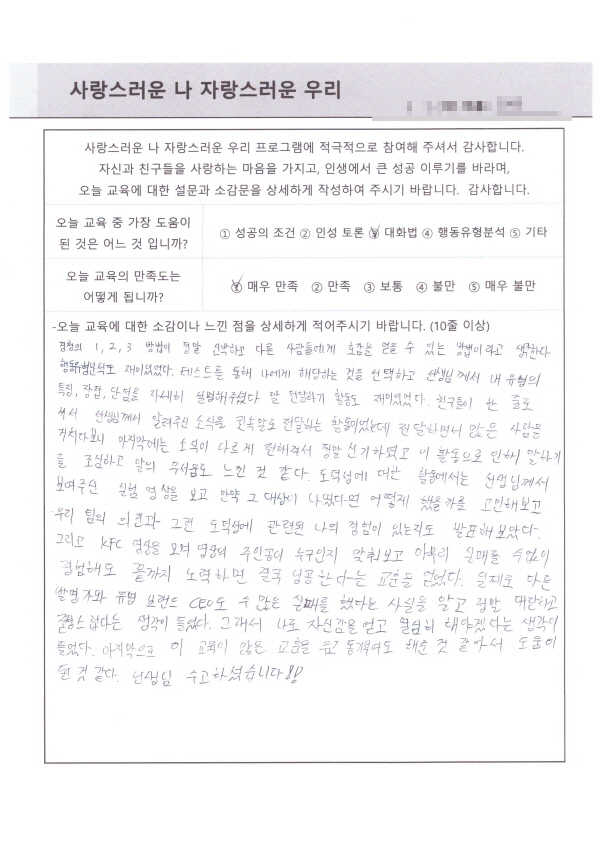 사랑스러운 나 자랑스러운 우리
사랑스러운 나 자랑스러운 우리 프로그램에 적극적으로 참여해 주셔서 감사합니다.
자신과 친구들을 사랑하는 마음을 가지고, 인생에서 큰 성공 이루기를 바라며,
오늘 교육에 대한 설문과 소감문을 상세하게 작성하여 주시기 바랍니다. 감사합니다.
오늘 교육 중 가장 도움이
된 것은 어느 것 입니까?
① 성공의 조건 ② 인성 토론 ③ 대화법 ④ 행동유형분석 ⑤ 기타
오늘 교육의 만족도는
어떻게 됩니까?
① 매우 만족 ② 만족 ③ 보통 ④ 불만 ⑤ 매우 불만
-오늘 교육에 대한 소감이나 느낀 점을 상세하게 적어주시기 바랍니다. (10줄 이상)
1, 2, 3 방법이 정말 신박하고 다른 사람들에게 호감을 얻을 수 있는 방법이라고 생각한다
행동유형분석도 재미있었다. 테스트를 통해 나에게 해당하는 것을 선택하고 선생님께서 내 유형의
특징, 장점, 단점을 자세히 설명해주셨다 말 전달하기 활동도 재미있었다. 친구들이 한 줄로
서서 선생님께서 알려주신 소식을 귓속말로 전달하는 활동이었는데 전달하면서 많은 사람을
거치다보니 마지막에는 소식이 다르게 전해져서 정말 신기하였고 이 활동으로 인해 말하기
를 조심하고 말의 무서움도 느낀 것 같다. 도덕성에 대한 활동에서는 선생님께서
보여주신 실험 영상을 보고 만약 그 대상이 나였다면 어떻게 했을까를 고민해보고
우리 팀의 의견과 그런 도덕성에 관련된 나의 경험이 있는지도 발표해보았다.
그리고 KFC 영상을 보며 영상의 주인공이 누구인지 맞춰보고 아무리 실패를 수없이
경험해도 끝까지 노력하면 결국 성공한다는 교훈을 얻었다. 실제로 다른
발명가와 유명 브랜드 CEO도 수 많은 실패를 했다는 사실을 알고 정말 대단하고
존경스럽다는 생각이 들었다. 그래서 나도 자신감을 얻고 열심히 해야겠다는 생각이
들었다. 마지막으로 이 교육이 많은 교훈을 주고 동기부여도 해준 것 같아서 도움이
된 것 같다. 선생님 수고하셨습니다!!